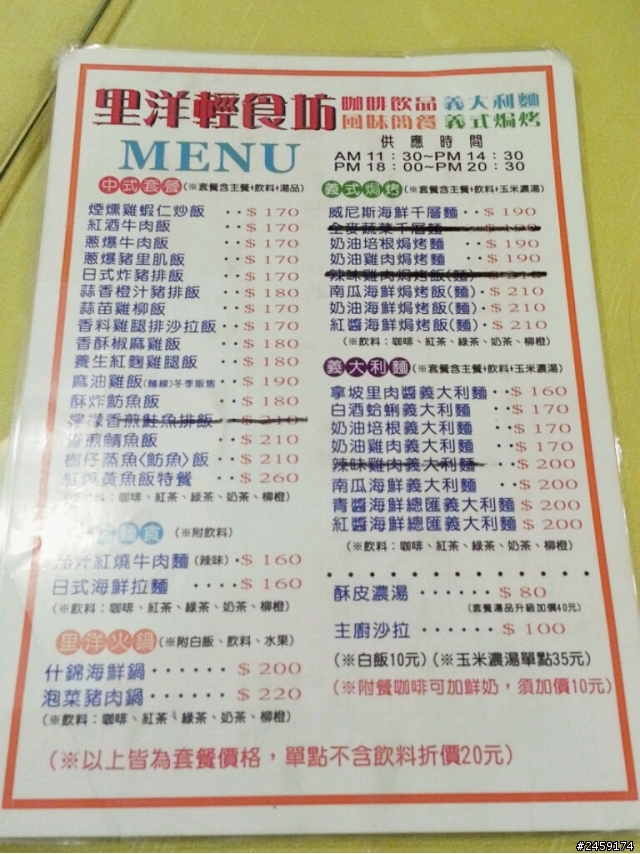 里洋輕食坊
咖啡飲品 義大利麵
風味簡餐 義式焗烤
MENU
供應時間
AM 11：30~PM 14：30
PM 18：00~PM 20：30
中式套餐 (※套餐含主餐+飲料+湯品)
煙燻雞蝦仁炒飯 ‥$ 170
紅酒牛肉飯 ‥$ 170
蔥爆牛肉飯 ‥$ 170
蔥爆豬里肌飯 ‥$ 170
日式炸豬排飯 ‥$ 170
蒜香橙汁豬排飯 ‥$ 180
蒜苗雞柳飯 ‥$ 170
香料雞腿排沙拉飯‥$ 170
香酥椒麻雞飯 ‥$ 180
養生紅麴雞腿飯 ‥$ 180
麻油雞飯(麵線)冬季販售‥$ 190
酥炸魴魚飯 ‥$ 180
檸檬香煎鮭魚排飯‥$ 210
香煎鯖魚飯 ‥$ 210
樹仔蒸魚〈魴魚〉飯‥$ 210
紅燒黃魚飯特餐 ‥$ 260
(※飲料：咖啡、紅茶、綠茶、奶茶、柳橙)
麵食 (※附飲料)
茄汁紅燒牛肉麵(辣味)‧$ 160
日式海鮮拉麵 ‥‥$ 160
(※飲料：咖啡、紅茶、綠茶、奶茶、柳橙)
里洋火鍋 (※附白飯、飲料、水果)
什錦海鮮鍋‥‥‥ $ 200
泡菜豬肉鍋‥‥‥ $ 220
(※飲料：咖啡、紅茶、綠茶、奶茶、柳橙)
義式焗烤 (※套餐含主餐+飲料+玉米濃湯)
威尼斯海鮮千層麵‥$ 190
全麥蔬菜千層麵‥$ 190
奶油培根焗烤麵 ‥$ 190
奶油雞肉焗烤麵 ‥$ 190
辣味雞肉焗烤飯(麵)‧$ 210
南瓜海鮮焗烤飯(麵)‧$ 210
奶油海鮮焗烤飯(麵)‧$ 210
紅醬海鮮焗烤飯(麵)‧$ 210
(※飲料：咖啡、紅茶、綠茶、奶茶、柳橙)
義大利麵 (※套餐含主餐+飲料+玉米濃湯)
拿坡里肉醬義大利麵 ‥$ 160
白酒蛤蜊義大利麵 ‥$ 170
奶油培根義大利麵 ‥$ 170
奶油雞肉義大利麵 ‥$ 170
辣味雞肉義大利麵 ‥$ 200
南瓜海鮮義大利麵 ‥$ 200
青醬海鮮總匯義大利麵 $ 200
紅醬海鮮總匯義大利麵 $ 200
(※飲料：咖啡、紅茶、綠茶、奶茶、柳橙)
酥皮濃湯‥‥‥ $ 80
(套餐湯品升級加價40元)
主廚沙拉‥‥‥ $ 100
(※白飯10元)(※玉米濃湯單點35元)
(※附餐咖啡可加鮮奶，須加價10元)
(※以上皆為套餐價格，單點不含飲料折價20元)
#2459174